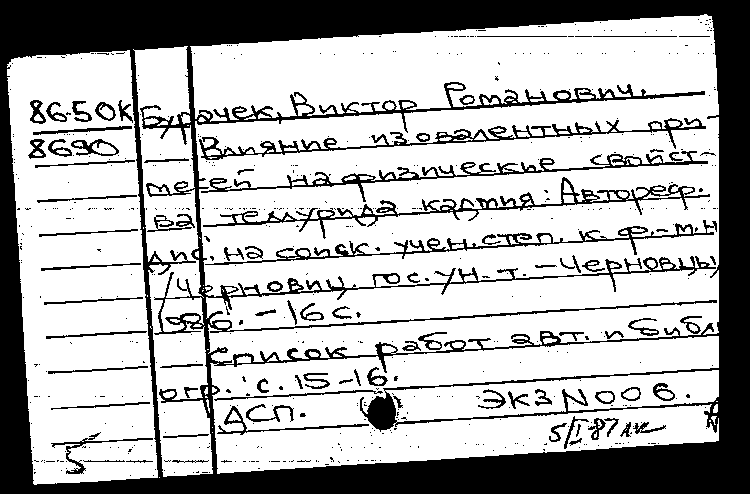 86-50К Бурачек, Виктор Романович.
8690 Влияние изовалентных при-
месей на физические свойст-
ва теллурида кадмия: Автореф.
дис. на соиск. учен. степ. к. ф.-м. н
/Черновиц. гос. ун-т. – Черновцы,
1986. – 16 с.
Список работ авт. и библи
огр.: с. 15-16.
ДСП. ЭКЗ N 006.
5/I-87
5